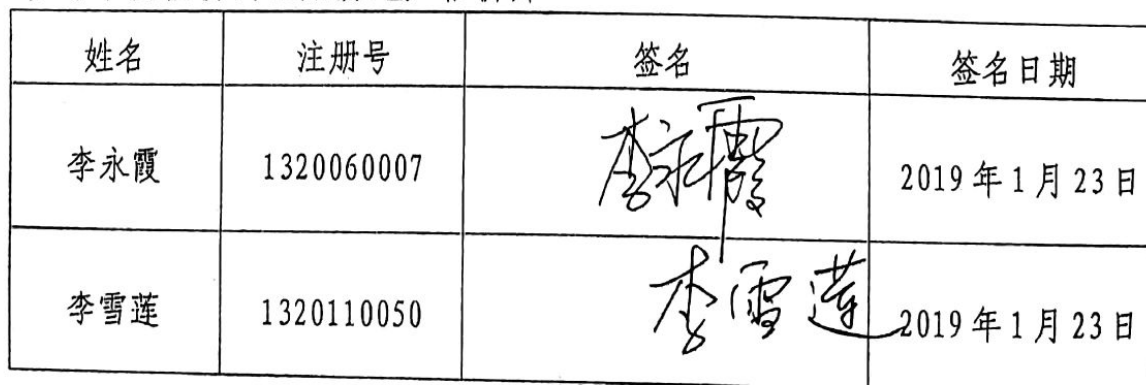 姓名 注册号 签名 签名日期
李永霞 1320060007 李永霞 2019年1月23日
李雪莲 1320110050 李雪莲 2019年1月23日